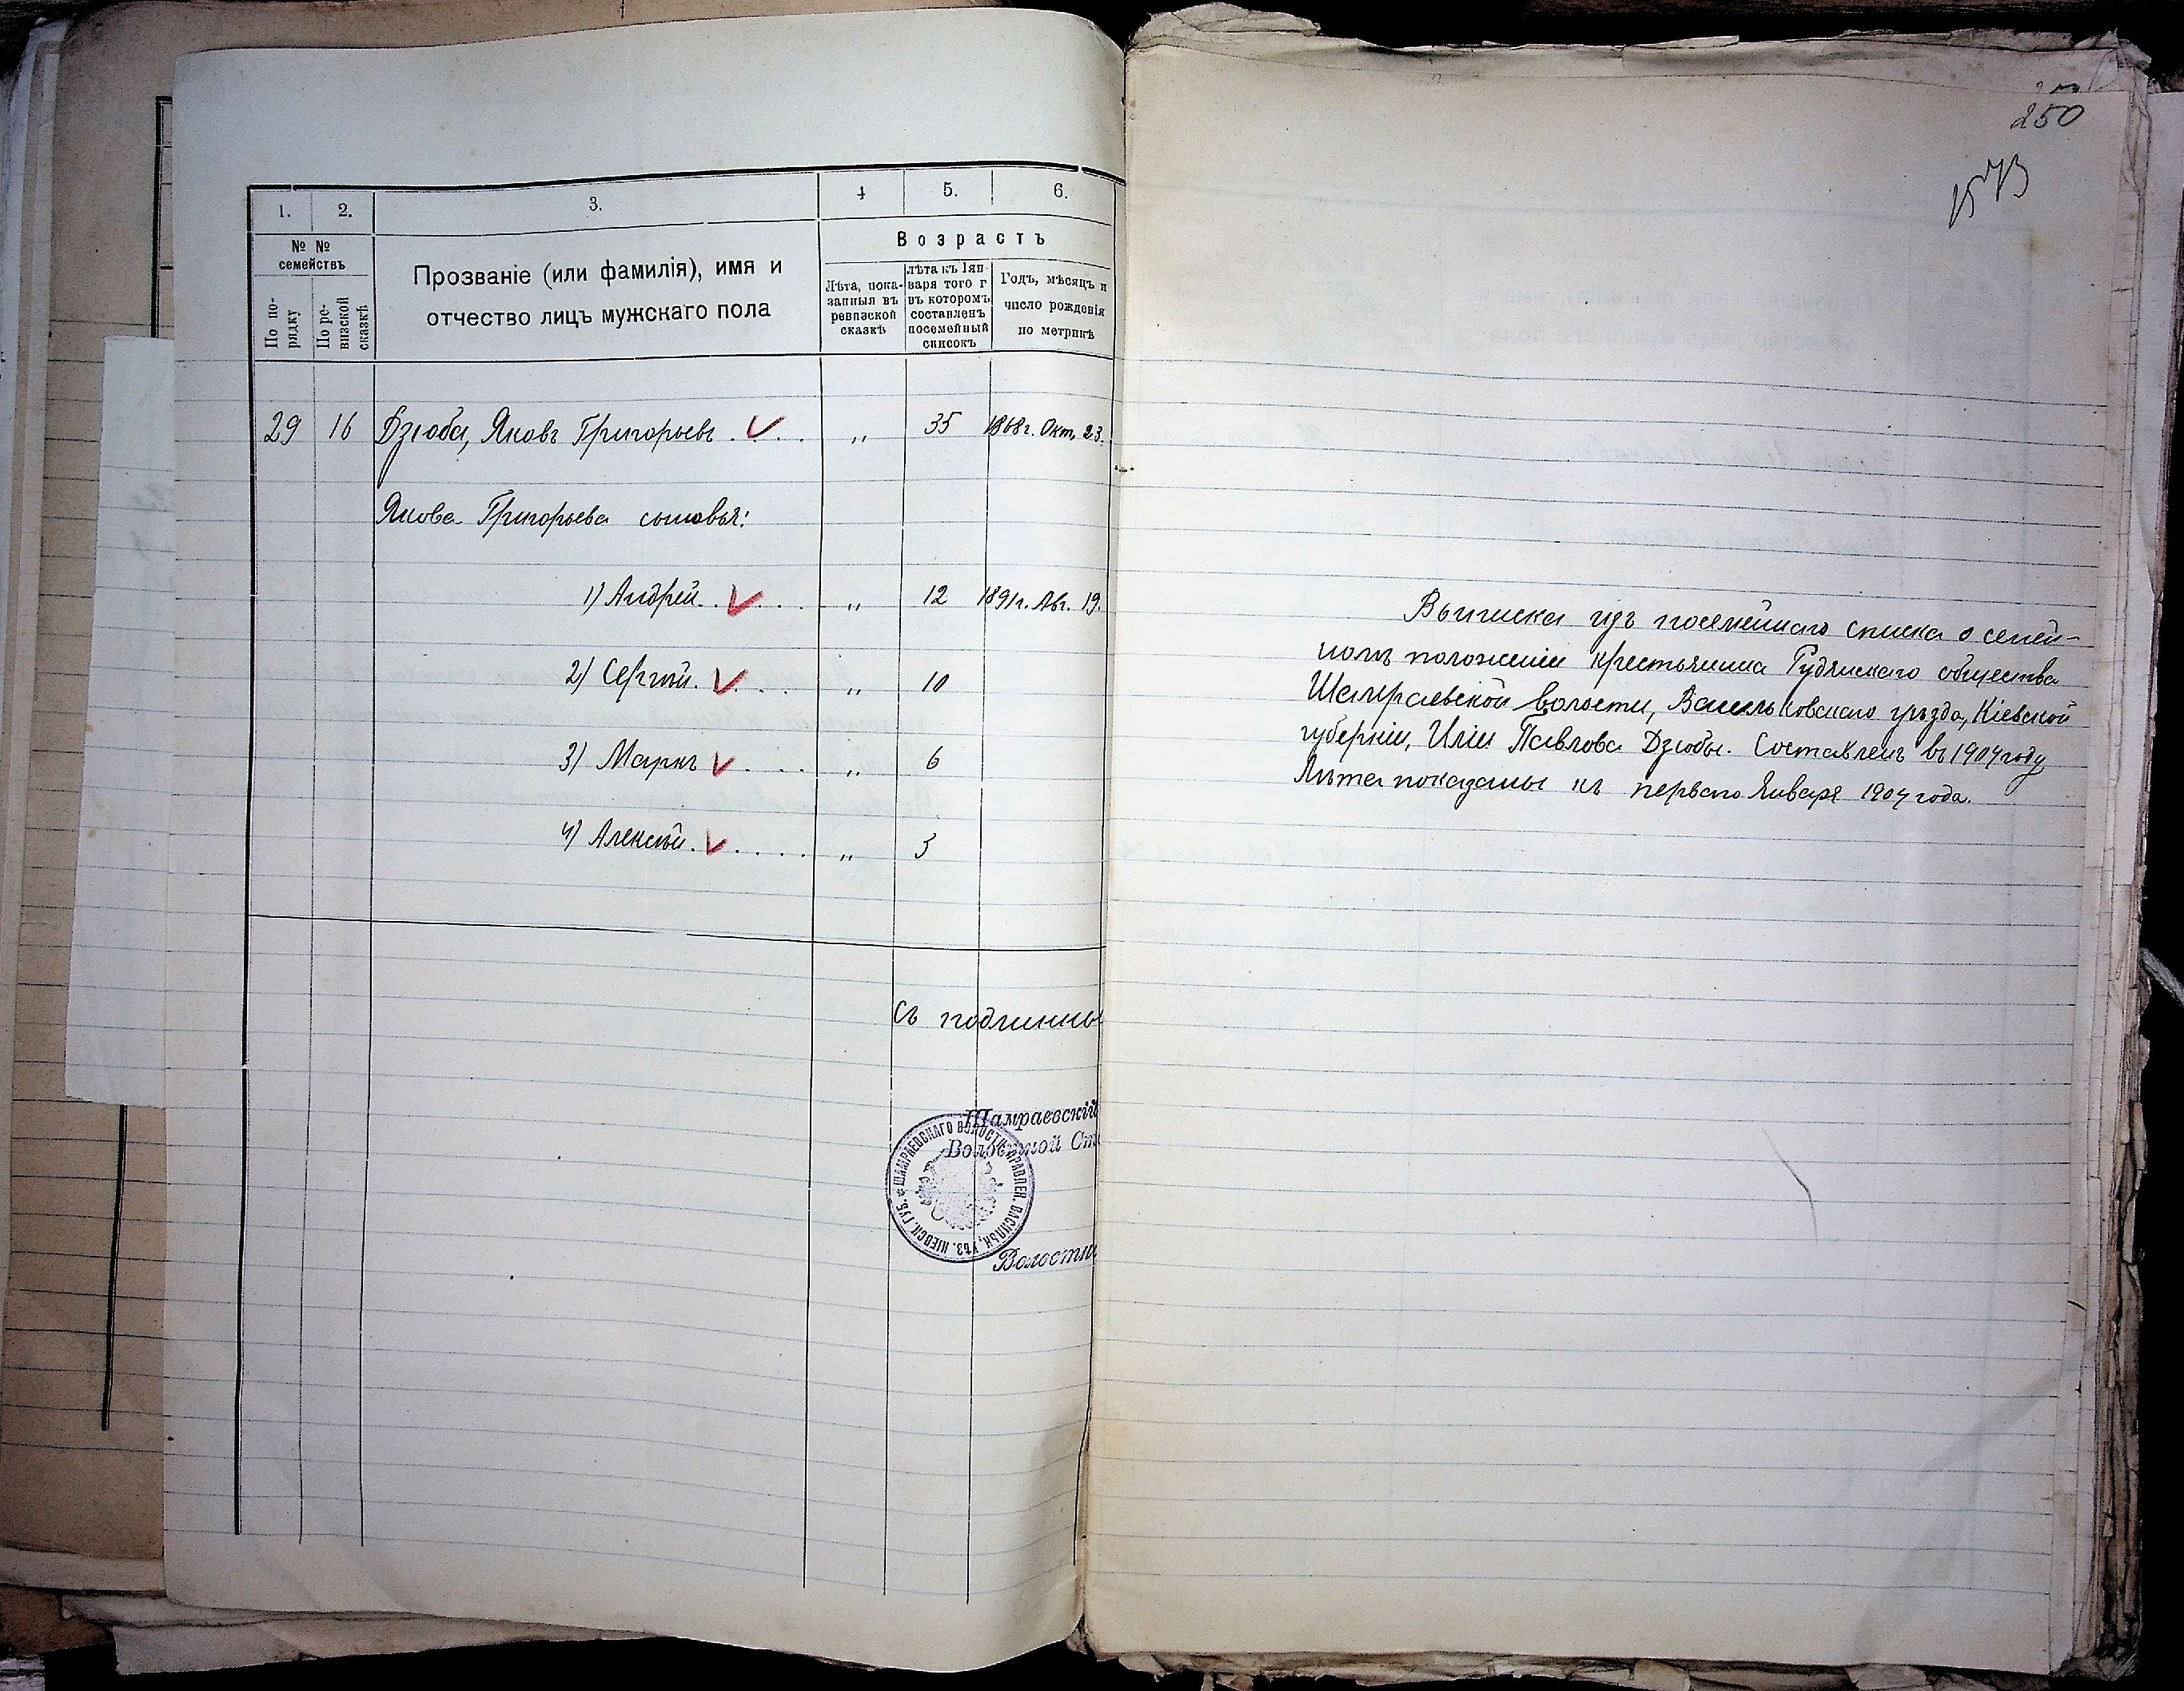 1. 2. 3. 4 5. 6.
№ № семействъ
По по-
рядку
По ре-
визской
сказкѣ
Прозваніе (или фамилія), имя и
отчество лицъ мужскаго пола
Возрастъ
Лѣта, пока-
занныя въ
ревизской
сказкѣ
лѣта къ 1 ян-
варя того г
въ которомъ
составленъ
посемейный
списокъ
Годъ, мѣсяцъ и
число рожденія
по метрикѣ
29 16 Дзюба, Яковъ Григорьевъ . . . „ 35 1868 г. Окт. 23.
Якова Григорьева сыновья:
1) Андрей . . . . „ 12 1891 г. Авг. 19.
2) Сергѣй . . . . „ 10
3) Маркъ . . . . „ 6
4) Алексѣй . . . . . „ 3
Съ подлинны
Шамраевскій
Волостной Ст
ШАМРАЕВСКАГО ВОЛОСТН. ПРАВЛЕН. ВАСИЛЬК. УѢЗ. КІЕВСК. ГУБ. *
Волостн
250
Выписка изъ посемейнаго списка о семей-
номъ положеніи крестьянина Рудянскаго общества
Шамраевской волости, Васильковскаго уѣзда, Кіевской
губерніи, Иліи Павлова Дзюбы. Составленъ въ 1904 году
Лѣта показаны къ перваго Января 1904 года.